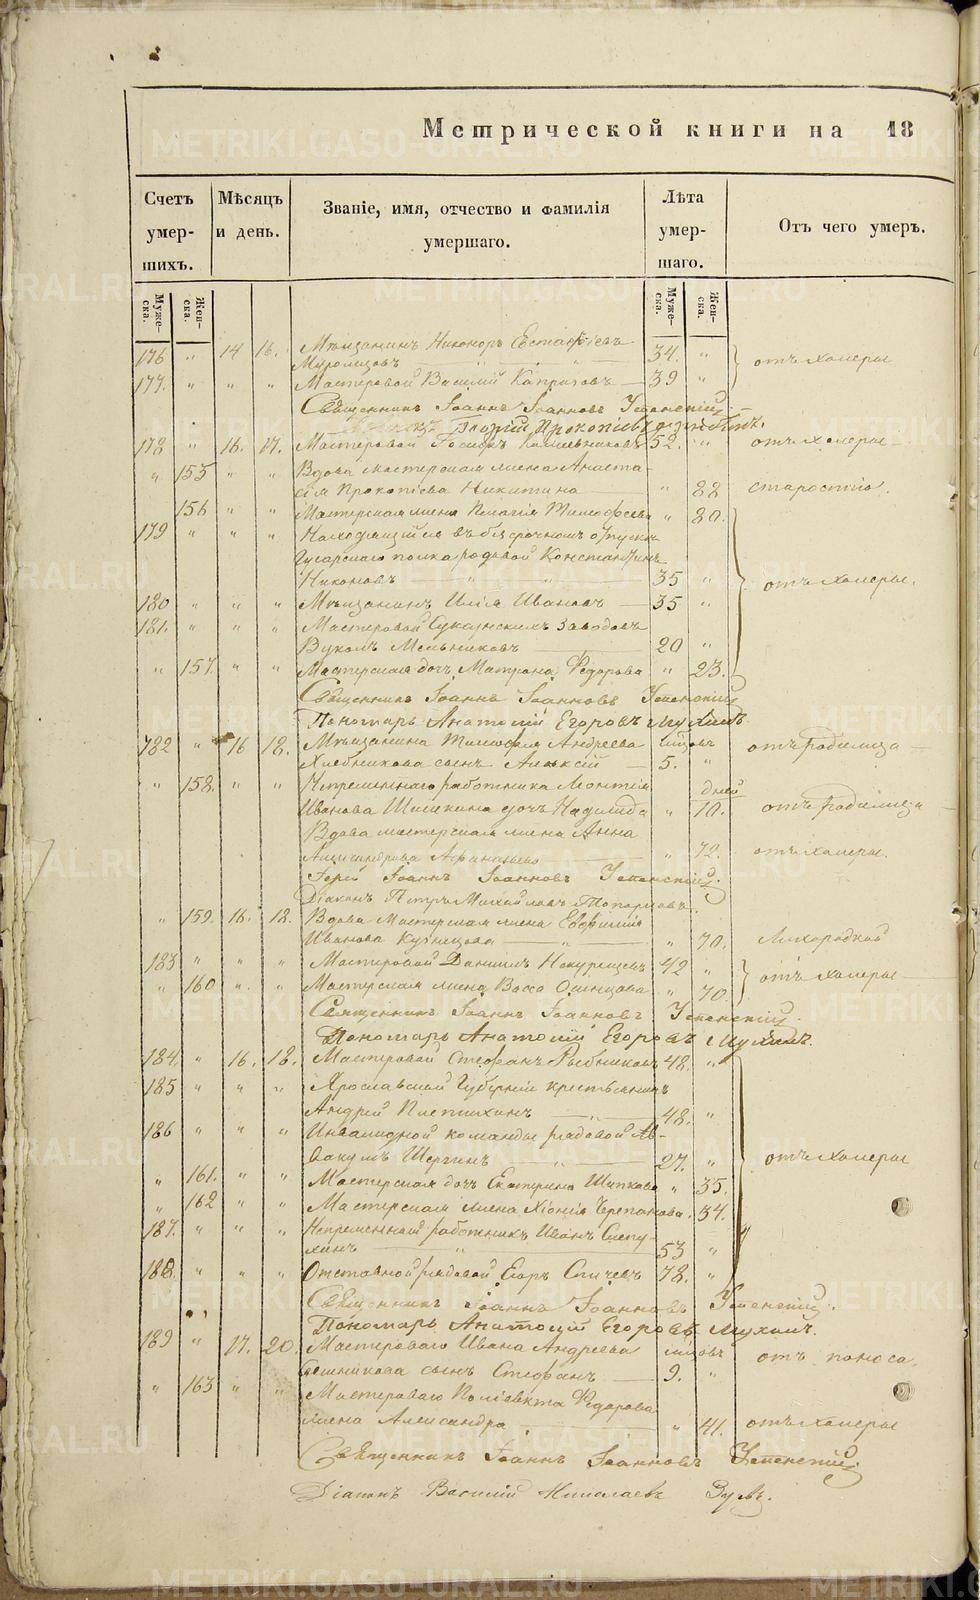 Метрической книги на 18
Счетъ умер- шихъ.
Мѣсяцъ и день.
Званіе, имя, отчество и фамилія умершаго.
Лѣта умер- шаго.
Отъ чего умеръ.
Муже- ска.
Жен- ска.
Муже- ска.
Жен- ска.
176 " 14 16. Мѣщанинъ Никоноръ Евстафіевъ
Муромцовъ 34. " отъ холеры
177. " " " Мастеровой Василій 39 "
Священникъ Іоаннъ Іоанновъ Успенскій
178 " 16. 17. Мастеровой 52. " отъ холеры
" 155 " " Вдова мастерская жена Анаста-
сія Прокопіева Никитина " 88 старостію.
156 " " Мастерская жена Пелагія Тимофеева " 80.
179 " " " Находящійся въ безсрочномъ отпуску
Гусарскаго полка рядовой Константинъ
Никоновъ 35 " отъ холеры.
180 " " " Мѣщанинъ Илія Ивановъ 35 "
181. " " " Мастеровой заводовъ
Вуколъ Мельниковъ 20 "
" 157 " " Мастерская дочь Матрона Федорова " 23.
Священникъ Іоаннъ Іоанновъ Успенскій
Пономарь Анатолій Егоровъ Мухинъ
182 " 16 18. Мѣщанина Тимофея Андреева
Хлебникова сынъ Алексій 5. " отъ родимца
" 158. " " Непременнаго работника Леонтія дней
Иванова Шишкина дочь Надежда " 10. отъ родимца
Вдова мастерская жена Анна
Александрова " 72. отъ холеры.
Іерей Іоаннъ Іоанновъ Успенскій
Діаконъ Петръ Михайловъ Топорковъ
" 159. 16. 18. Вдова мастерская жена Евфимія
Иванова Кузнецова " 70. Лихорадкой
183 " " " Мастеровой Даніилъ 42 " отъ холеры
" 160 " " Мастерская жена " 70.
Священникъ Іоаннъ Іоанновъ Успенскій.
Пономарь Анатолій Егоровъ Мухинъ.
184. " 16. 18. Мастеровой Стефанъ Рыбниковъ 48. "
185 " " " Ярославской Губерніи крестьянинъ
Андрей Плетюхинъ 48. "
186 " " " Инвалидной команды рядовой Ав-
вакумъ Шергинъ 27. " отъ холеры
" 161. " " Мастерская дочь Екатерина Шипкова " 35.
" 162 " " Мастерская жена Хіонія Черепанова. 34.
187. " " " Непременный работникъ Иванъ Слепу-
хинъ 53 "
188. " " " Отставной рядовой Егоръ Спичевъ 78. "
Священникъ Іоаннъ Іоанновъ Успенскій.
Пономарь Анатолій Егоровъ Мухинъ.
189 " 17. 20. Мастероваго Ивана Андреева
сынъ Стефанъ 9. " отъ поноса.
" 163 " " Мастероваго Поліевкта Федорова
жена Александра " 41. отъ холеры
Священникъ Іоаннъ Іоанновъ Успенскій
Діаконъ Василій Николаевъ
METRIKI.GASO-URAL.RU